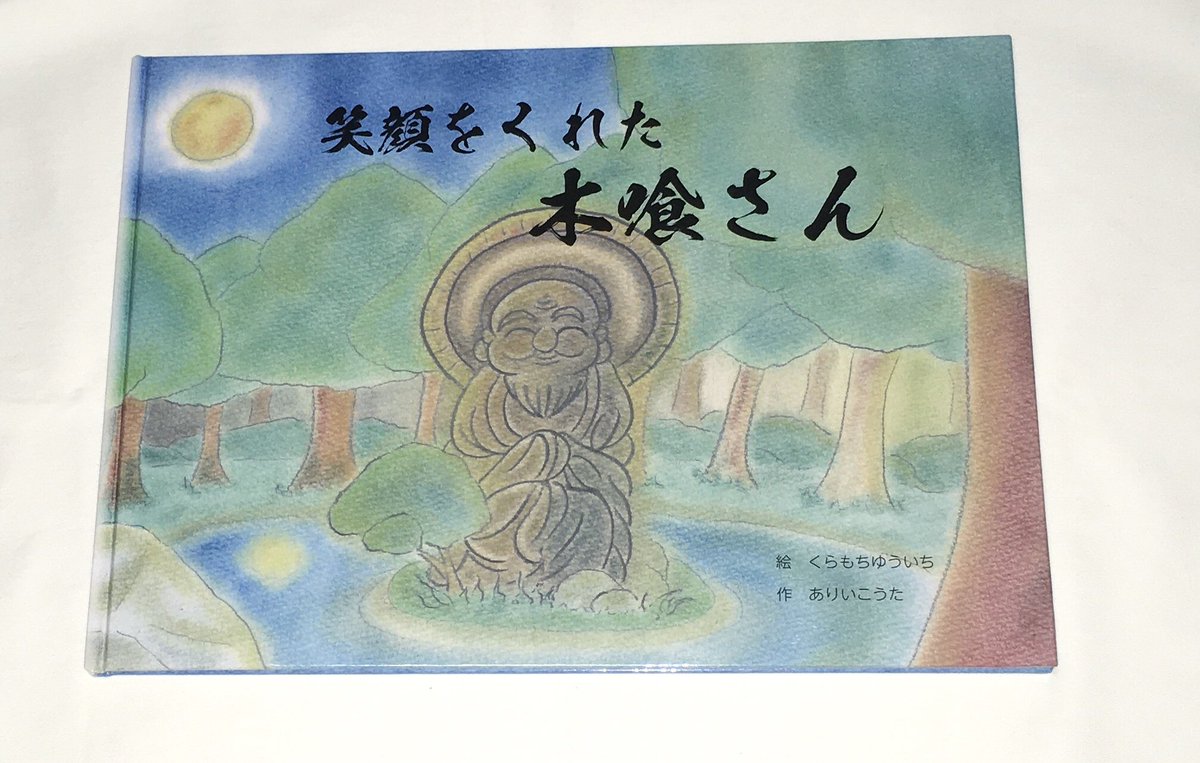 笑顔をくれた
木喰さん
絵　くらもちゆういち
作　ありいこうた